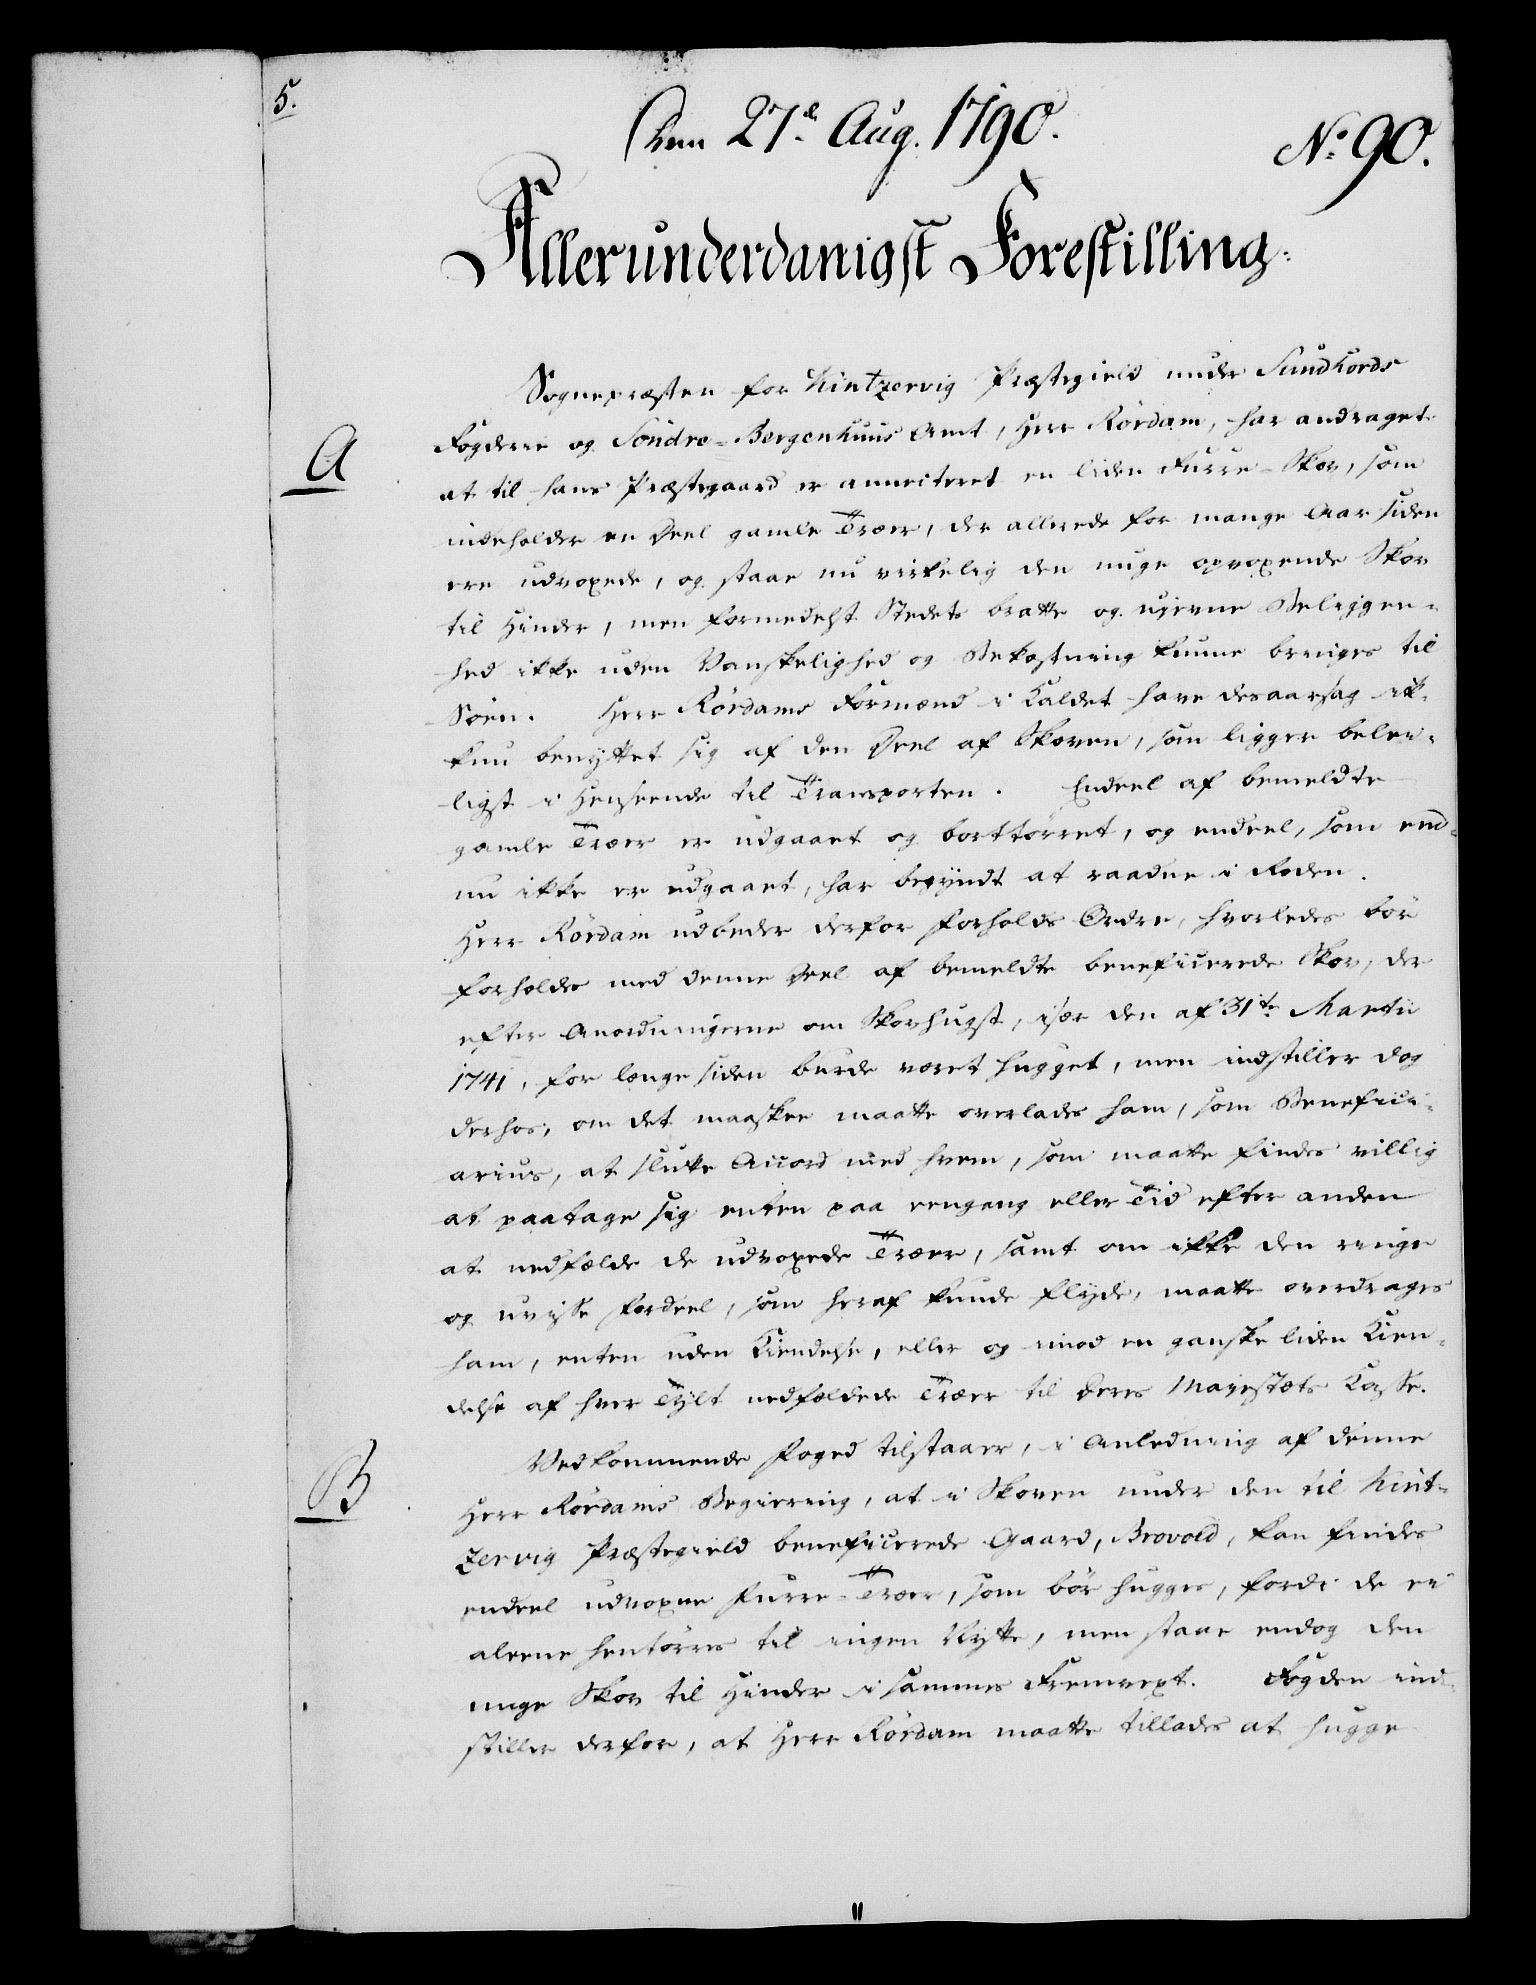 5.
Den 27de Aug. 1790.
No 90.
Allerunderdanigst Forestilling.
Sognepræsten for Kintzervig Præstegield under Sundhords
A
Fogderie og Söndre-Bergenhuus Amt, Herr Rördam, har andraget
at til hans Præstegaard er annecteret en liden Furre-Skov, som
indeholder en Deel gamle Træer, der allerede for mange Aar siden
ere udvoxede, og staae nu virkelig den unge opvoxende Skov
til Hinder, men formedelst Stedets bratte og ujevne Beliggen-
hed ikke uden Vanskelighed og Bekostning kunne bringes til
Söen. Herr Rördams Formænd i Kaldet have desaarsag ik-
kun benyttet sig af den Deel af Skoven, som ligger belei-
ligst i Henseende til Transporten. Endeel af bemeldte
gamle Træer er udgaaet og borttörret, og endeel, som end-
nu ikke er udgaaet, har begyndt at raadne i Roden.
Herr Rördam udbeder derfor Forholds Ordre, hvorledes bör
forholdes med denne Deel af bemeldte beneficerede Skov, der
efter Anordningerne om Skovhugst, især den af 31te Martii
1741, for længe siden burde været hugget, men indstiller dog
derhos, om det maaskee maatte overlades ham, som Benefici-
arius, at slutte Accord med hvem, som maatte findes villig
at paatage sig enten paa eengang eller Tid efter anden
at nedfælde de udvoxede Træer, samt om ikke den ringe
og uvisse Fordeel, som heraf kunde flyde, maatte overdrages
ham, enten uden Kiendelse, eller og imod en ganske liden Kien-
delse af hver Tylt nedfældede Træer til Deres Majestæts Casse.
B
Vedkommende Foged tilstaaer, i Anledning af denne
Herr Rördams Begiering, at i Skoven under den til Kint-
zervig Præstegield beneficerede Gaard, Brovold, kan findes
endeel udvoxne Furre-Træer, som bör hugges, fordi de ei
aleene hentörres til ingen Nytte, men staae endog den
unge Skov til Hinder i sammes Fremvext. Fogden ind-
stiller derfor, at Herr Rördam maatte tillades at hugge